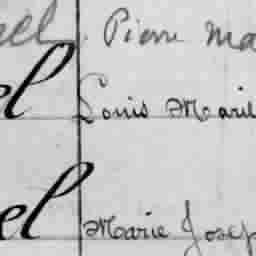 el Pierre Ma
el Louis Marie
el Marie Josep